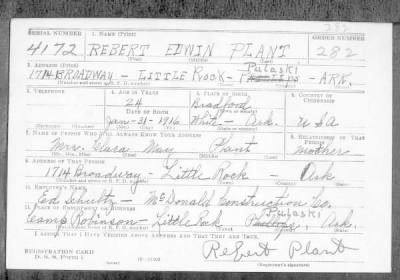 282
SERIAL NUMBER 1. NAME (Print) ORDER NUMBER
4172 REBERT EDWIN PLANT 282
2. ADDRESS (Print) Pulaski
1714 BROADWAY - LITTLE ROCK - - ARK.
3. TELEPHONE 4. AGE IN YEARS 5. PLACE OF BIRTH 6. COUNTRY OF CITIZENSHIP
24 Bradford
DATE OF BIRTH
Jan-31-1916 White - Ark. USA
7. NAME OF PERSON WHO WILL ALWAYS KNOW YOUR ADDRESS 8. RELATIONSHIP OF THAT PERSON
Mrs. Clara May Plant Mother
9. ADDRESS OF THAT PERSON
1714 Broadway - Little Rock - Ark
10. EMPLOYER'S NAME
Ed Schultz - McDonald Construction Co.
11. PLACE OF EMPLOYMENT OR BUSINESS PULASKI
Camp Robinson - Little Rock Ark.
I AFFIRM THAT I HAVE VERIFIED ABOVE ANSWERS AND THAT THEY ARE TRUE.
REGISTRATION CARD Rebert Plant
D. S. S. Form 1 (Registrant's signature)